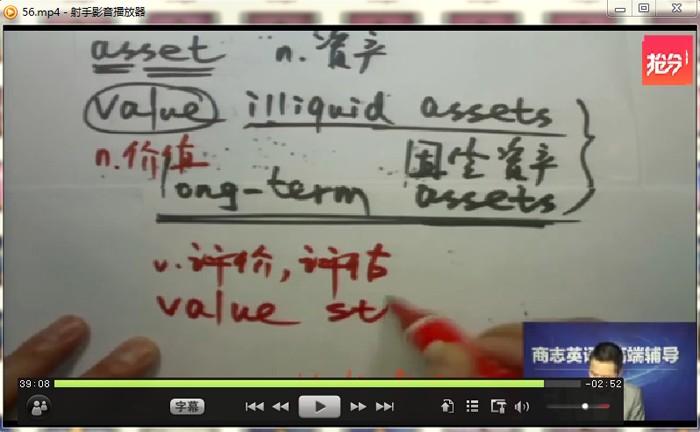 56.mp4 - 射手影音播放器
抢分
asset n. 资产
value illiquid assets
n. 价值 固定资产
long-term assets
v. 评价, 评估
value st
商志英语高端辅导
39:08 -02:52
字幕